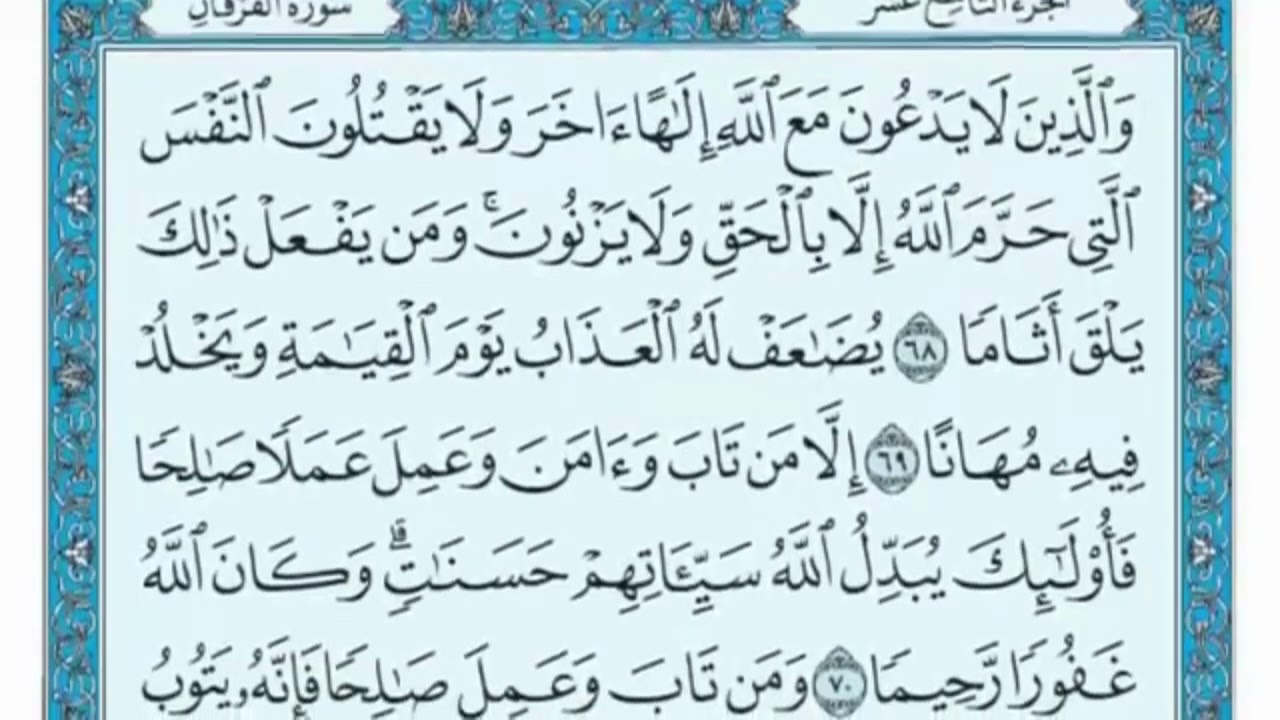 سورة الفرقان
الجزء التاسع عشر
وَٱلَّذِينَ لَا يَدْعُونَ مَعَ ٱللَّهِ إِلَٰهًا ءَاخَرَ وَلَا يَقْتُلُونَ ٱلنَّفْسَ
ٱلَّتِى حَرَّمَ ٱللَّهُ إِلَّا بِٱلْحَقِّ وَلَا يَزْنُونَ ۚ وَمَن يَفْعَلْ ذَٰلِكَ
يَلْقَ أَثَامًا ٦٨ يُضَٰعَفْ لَهُ ٱلْعَذَابُ يَوْمَ ٱلْقِيَٰمَةِ وَيَخْلُدْ
فِيهِۦ مُهَانًا ٦٩ إِلَّا مَن تَابَ وَءَامَنَ وَعَمِلَ عَمَلًا صَٰلِحًا
فَأُو۟لَٰٓئِكَ يُبَدِّلُ ٱللَّهُ سَيِّـَٔاتِهِمْ حَسَنَٰتٍ ۗ وَكَانَ ٱللَّهُ
غَفُورًا رَّحِيمًا ٧٠ وَمَن تَابَ وَعَمِلَ صَٰلِحًا فَإِنَّهُۥ يَتُوبُ